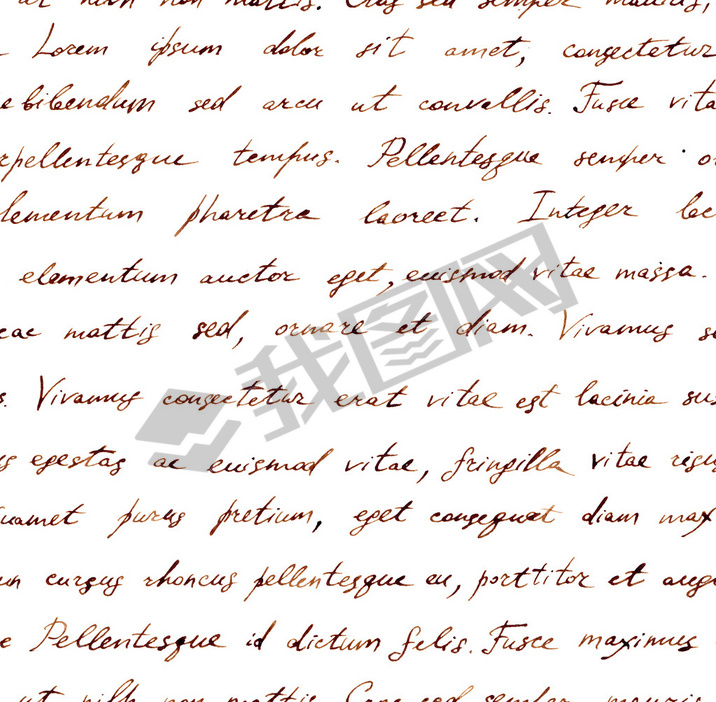 non mattis. Cras sed semper mauris,
Lorem ipsum dolor sit amet, consectetur
e bibendum sed arcu ut convallis. Fusce vita
rpellentesque tempus. Pellentesque semper or
lementum pharetra laoreet. Integer lac
elementum auctor eget, euismod vitae massa.
cac mattis sed, ornare et diam. Vivamus s
s. Vivamus consectetur erat vitae est lacinia sus
us egestas ac euismod vitae, fringilla vitae risus
uamet purus pretium, eget consequat diam max
un cursus rhoncus pellentesque eu, porttitor et augu
e Pellentesque id dictum felis. Fusce maximus
ut nibh non mattis. Cras sed semper mauris
我图网